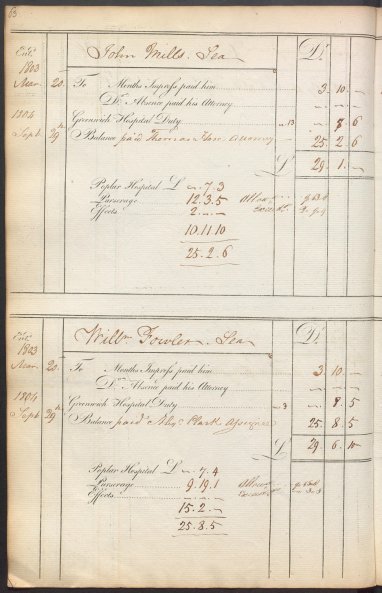 63
John Mills. Sea Dr.
Entd.
1803
Mar. 20. To Months Impress paid him 3. 10. —
Do. Absence paid his Attorney — — —
1804 Greenwich Hospital Duty 13 — 8 6
Sept. 29th Balance paid Thomas Attorney 25. 2. 6
£ 29. 1. —
Poplar Hospital £ — . 7. 3
Purserage 12. 3. 5
Effects 2. — . —
10. 11. 10
25. 2. 6
Willm. Fowler. Sea Dr.
Entd.
1803
Mar. 20. To Months Impress paid him 3 10 —
Do. Absence paid his Attorney — — —
1804 Greenwich Hospital Duty 3 — . 8. 5
Sept. 29th Balance paid Alexr. Clark Assignee 25. 8. 5
£ 29. 6. 10
Poplar Hospital £ — . 7. 4
Purserage 9. 19. 1
Effects — . — . —
15. 2. —
25. 8. 5